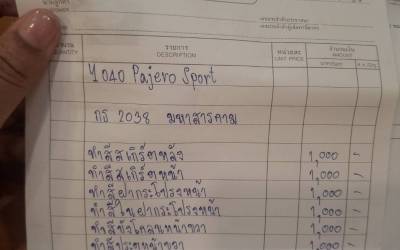 จำนวน
รายการ
DESCRIPTION
หน่วยละ
UNIT PRICE
จำนวนเงิน
AMOUNT
1040 Pajero Sport
กธ 2038 มหาสารคาม
ทำสีสเกิร์ตหลัง 1,000 -
ทำสีสเกิร์ตหน้า 1,000 -
ทำสีฝากระโปรงหน้า 1,000 -
ทำสีในฝากระโปรงหน้า 1,000 -
ทำสีบังโคลนหน้าขวา 1,000 -
ทำสีประตูหน้าขวา 1,000 -